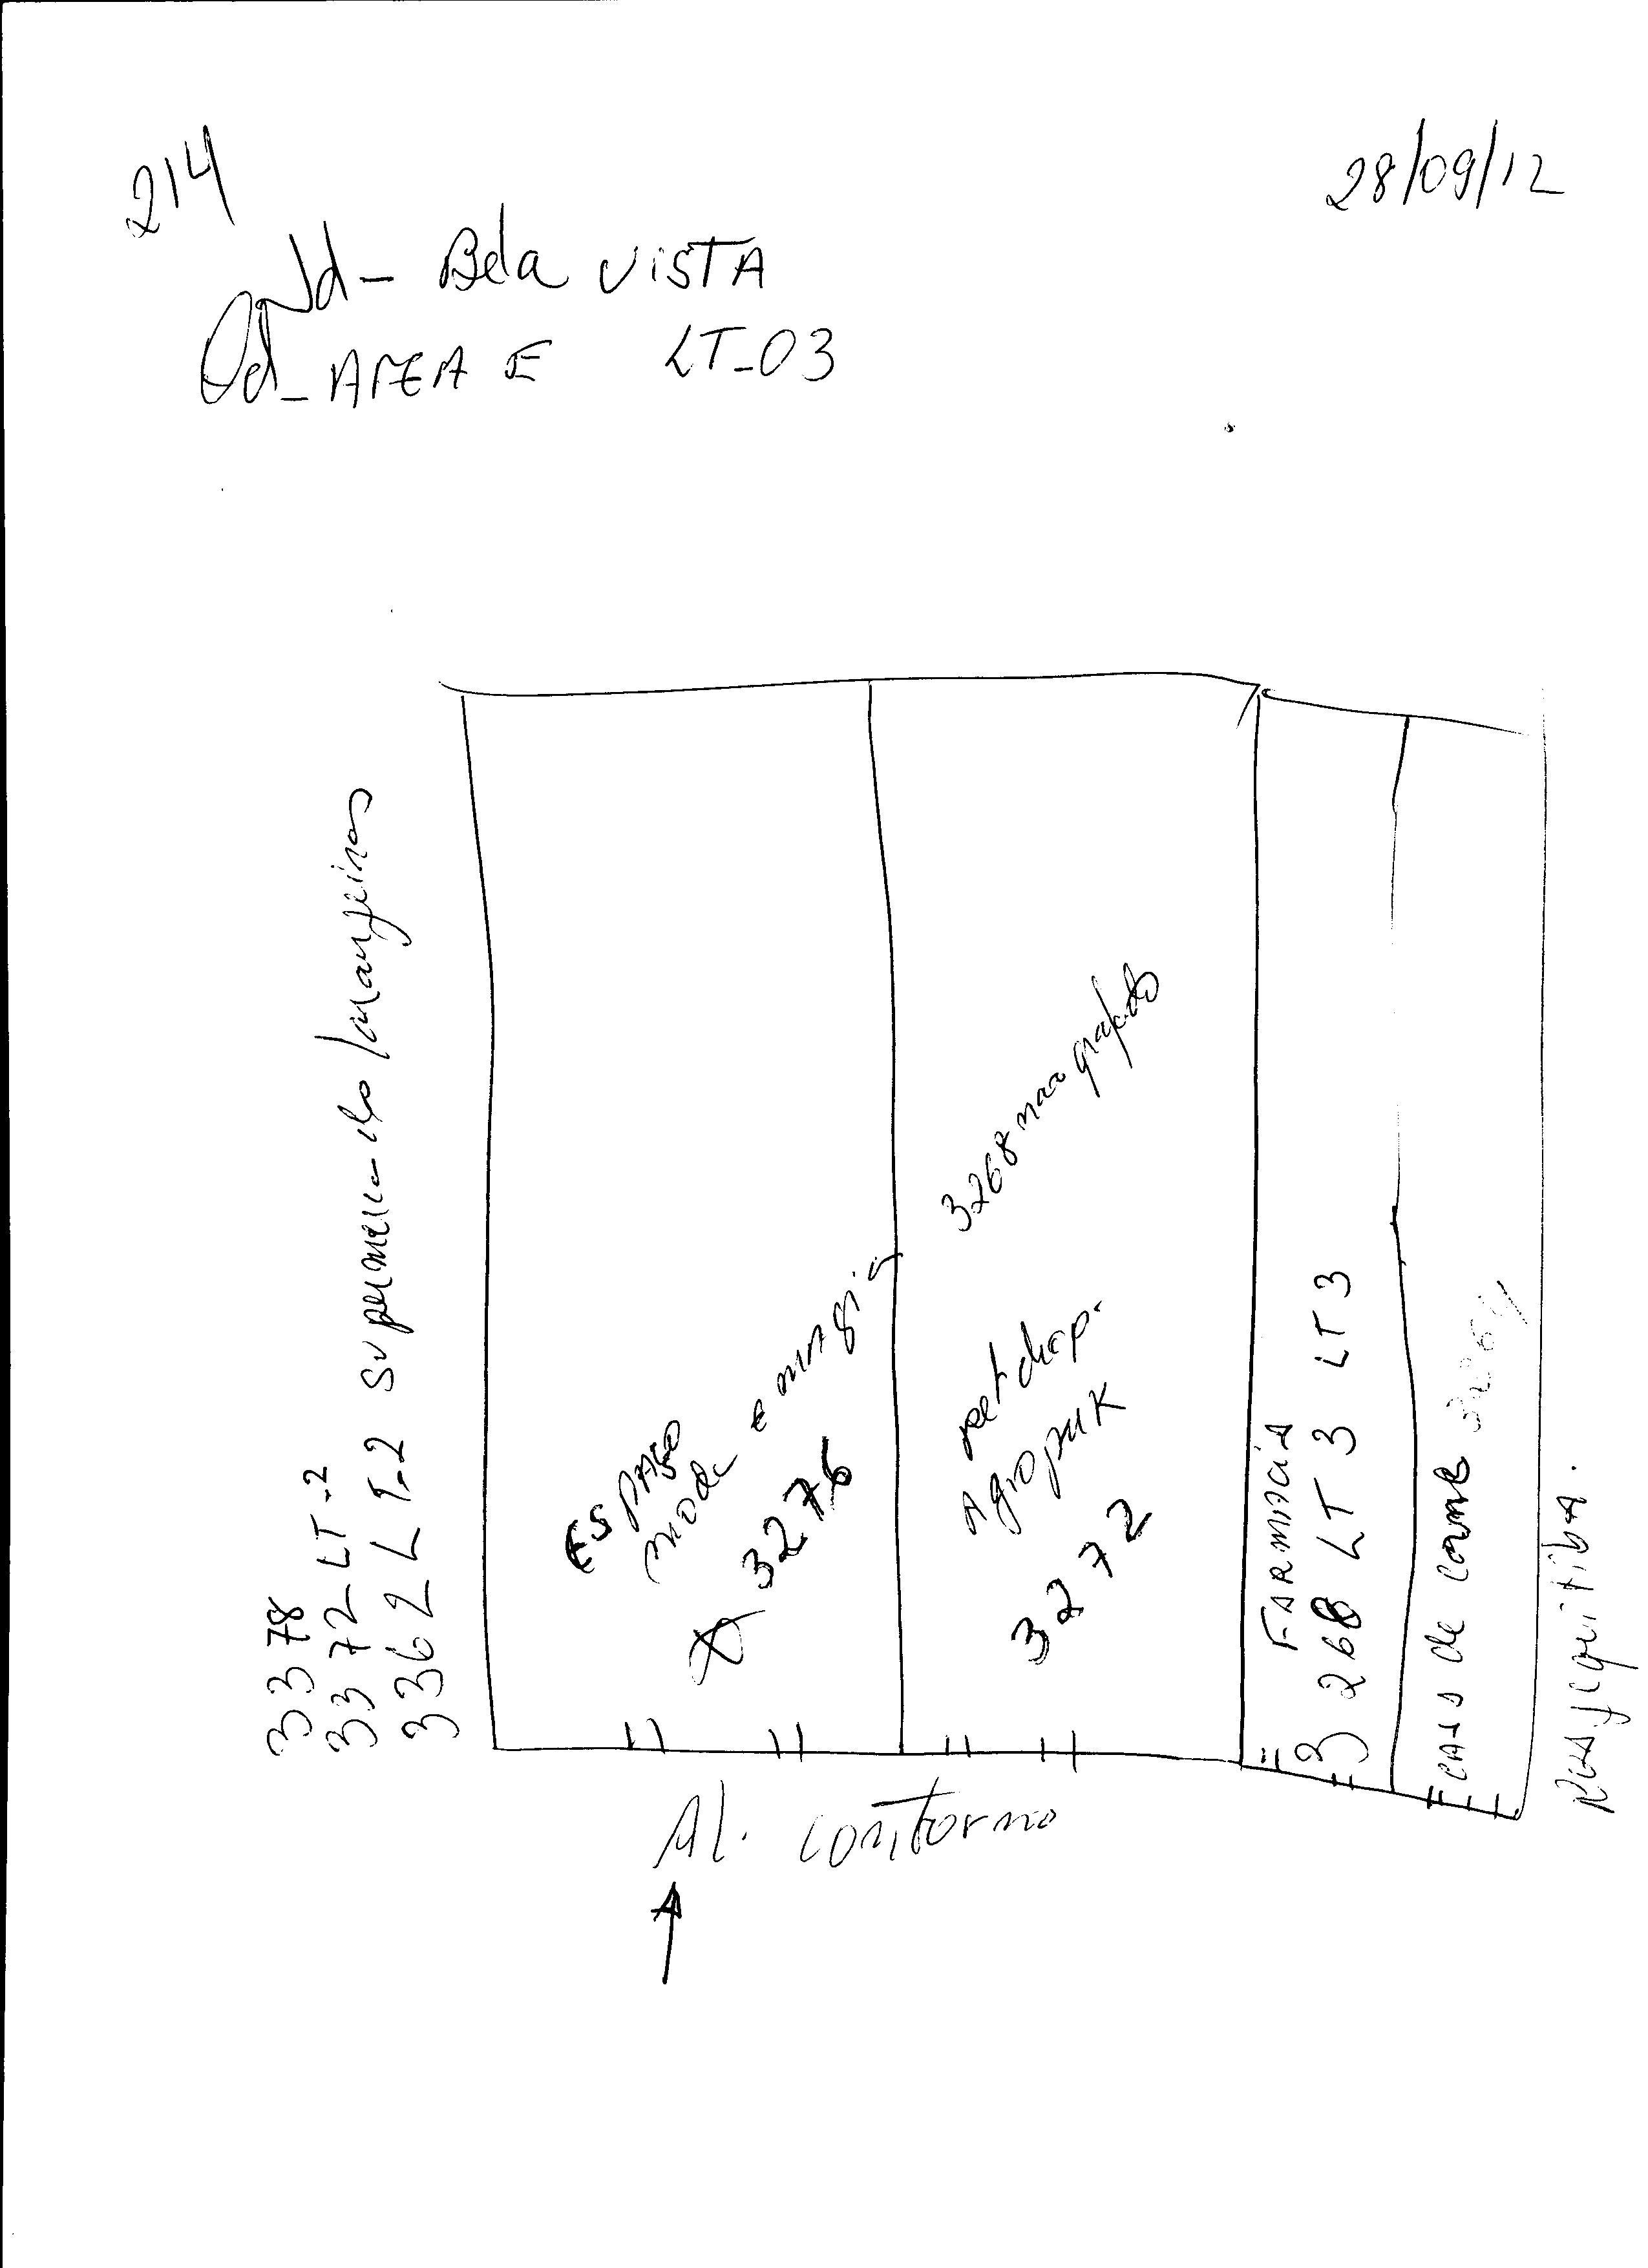 214
28/09/12
Jd- Bela VISTA
Qd- AREA E LT-03
3378
3372 LT-2
3362 LT-2 do laranjeiras
ESPAÇO
moda e
3276
3268 nao
3272
FARMACIA
3268 LT 3 LT 3
CASA de carne 3264
Al. contorno
Rua jequitiba.